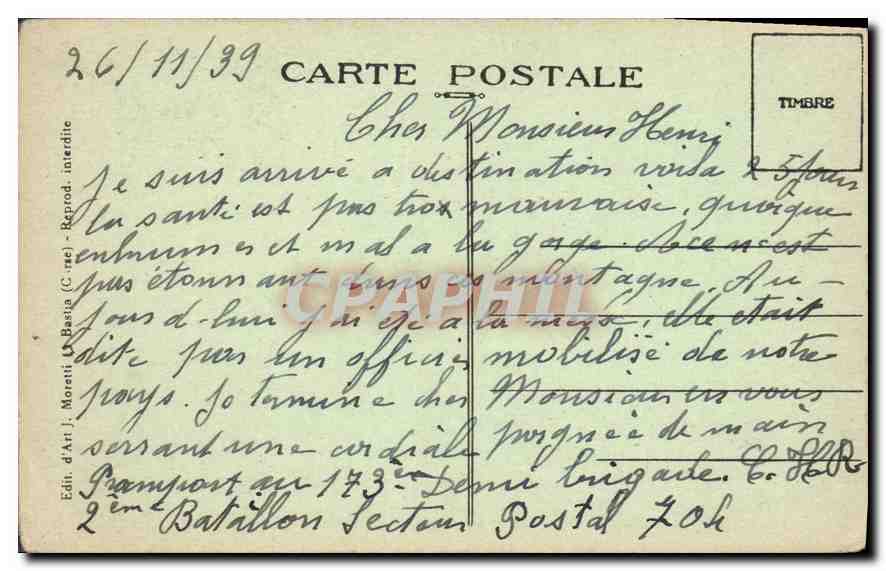 26/11/39
CARTE POSTALE
TIMBRE
Cher Monsieur Henri
Je suis arrivé a destination voila 2 5 jours
la santé est pas trop mauvaise, quoique
enhrumer et mal a la gorge. n'est
pas étonnant dans ces montagne. Au-
jourd-hui j'ai été a la mésse, Elle était
dite par un officier mobilisé de notre
pays. Je termine cher Monsieur en vous
serrant une cordiale poignée de main
au 173ème Demi brigade. C. H R
2ème Bataillon Secteur Postal 704
Edit. d'Art J. Moretti Bastia (Corse) - Reprod. interdite
CPAPHIL